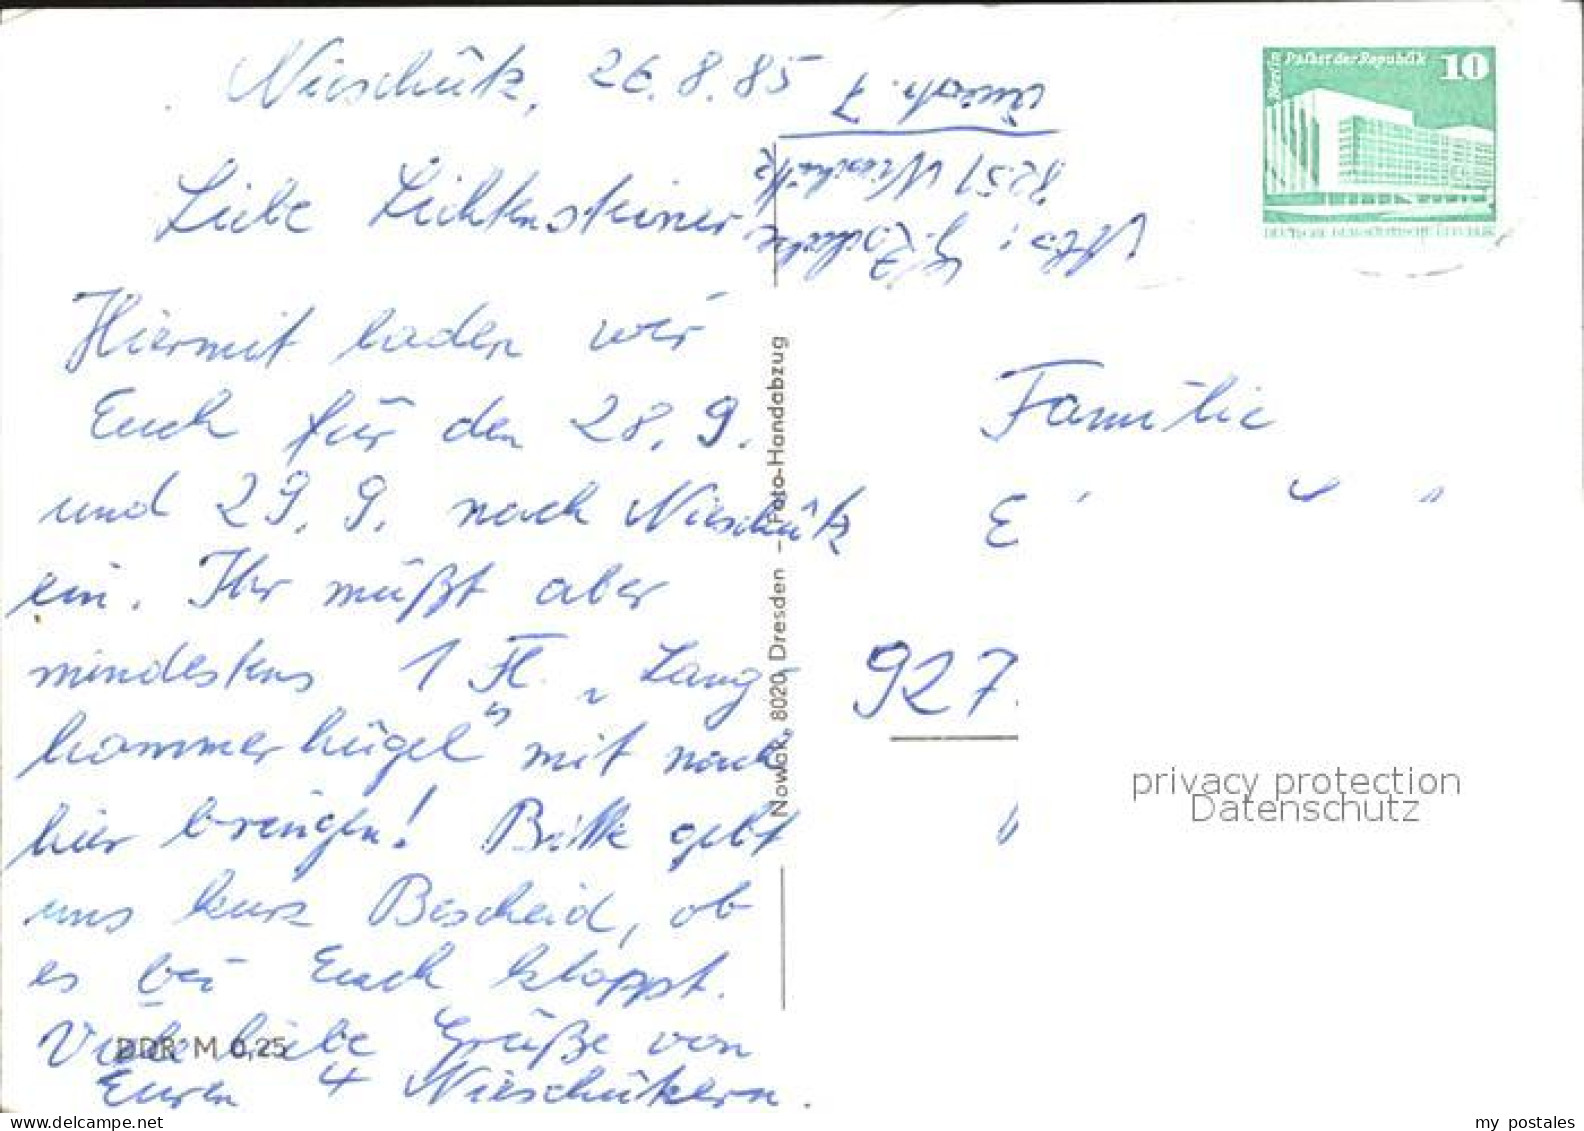 Nieschütz, 26.8.85
Liebe Lichtensteiner
Hiermit laden wir
Euch für den 28. 9.
und 29. 9. nach Nieschütz
ein. Ihr müßt aber
mindestens 1 Fl. „Lang-
hammerhügel" mit nach
hier bringen! Bitte gebt
uns kurz Bescheid, ob
es bei Euch klappt.
Viele liebe Grüße von
Euren 4 Nieschützern.
DDR M 0,25
Abs: G.
8251 Nieschütz
7
Nowak, 8020 Dresden – Foto-Handabzug
Berlin Palast der Republik 10
DEUTSCHE DEMOKRATISCHE REPUBLIK
Familie
E
927
privacy protection
Datenschutz
my postales